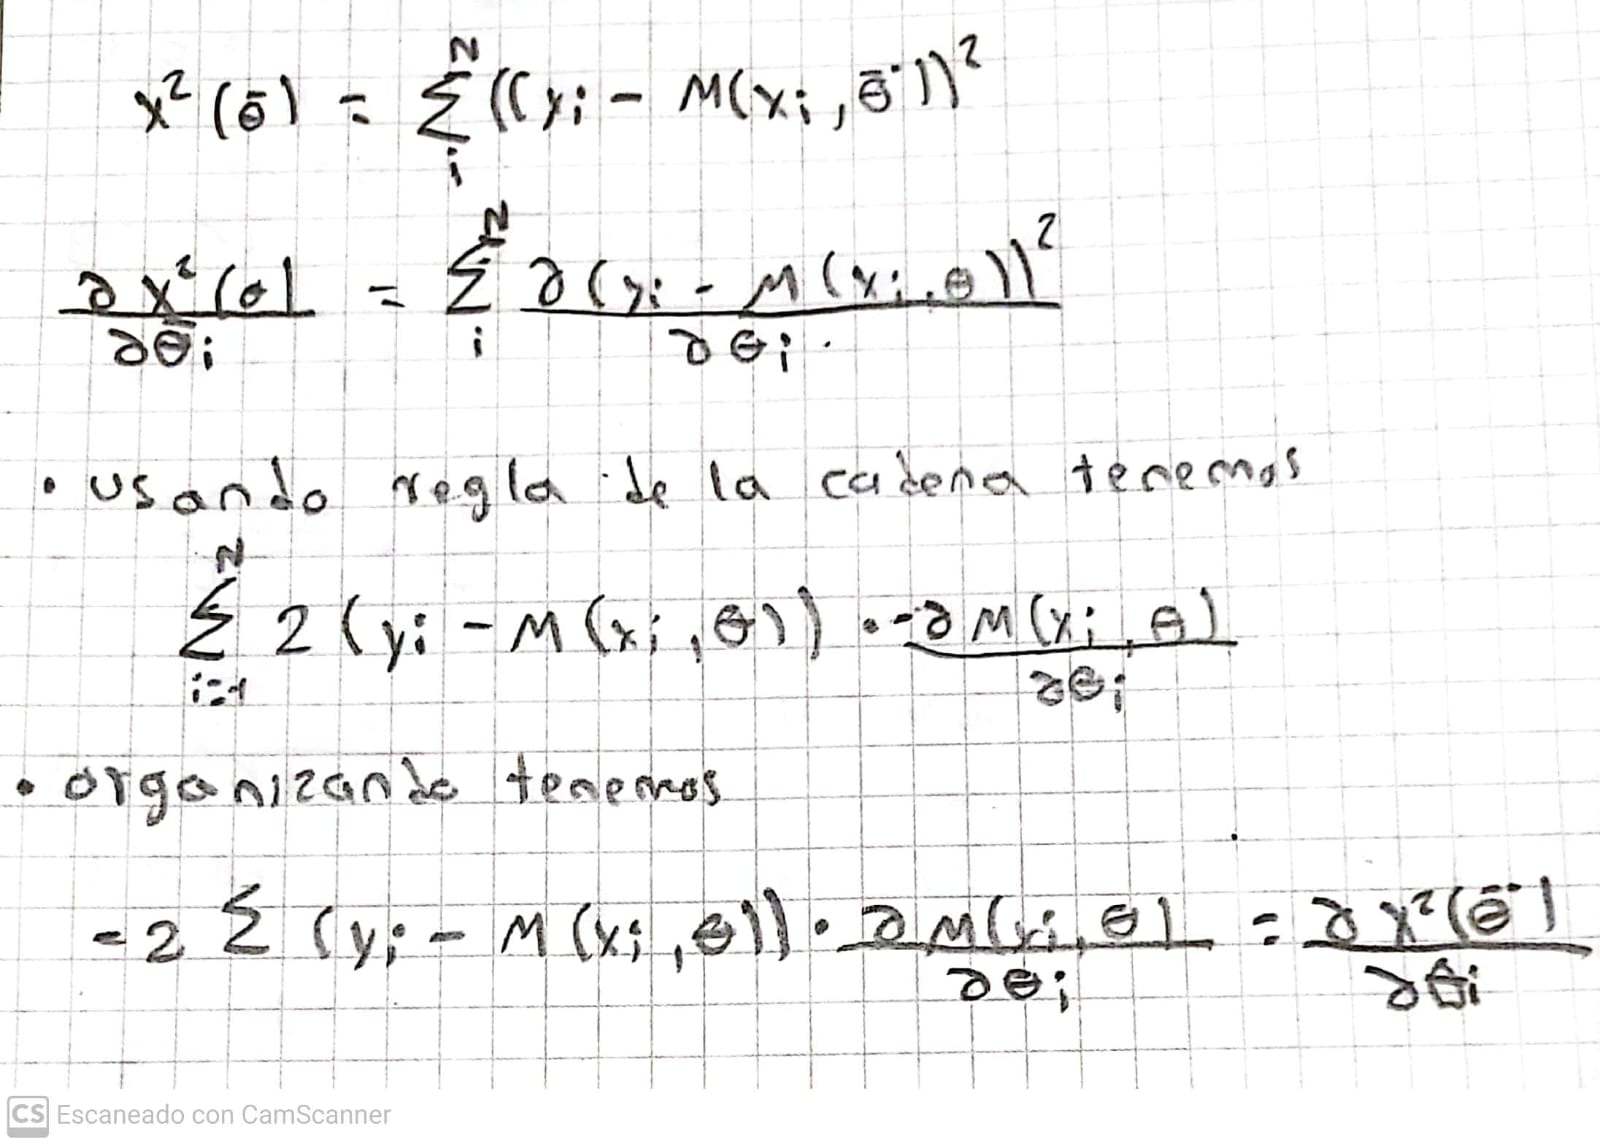 χ² (θ̄) = Σ_i^N ((yi - M(xi, θ̄))²
∂χ²(θ) / ∂θ̄i = Σ_i^N ∂(yi - M(xi, θ))² / ∂θi.
• usando regla de la cadena tenemos
Σ_{i=1}^N 2 (yi - M(xi, θ)) · -∂M(xi, θ) / ∂θi
• organizando tenemos
-2 Σ (yi - M(xi, θ)) · ∂M(xi, θ) / ∂θi = ∂χ²(θ̄) / ∂θi
CS Escaneado con CamScanner